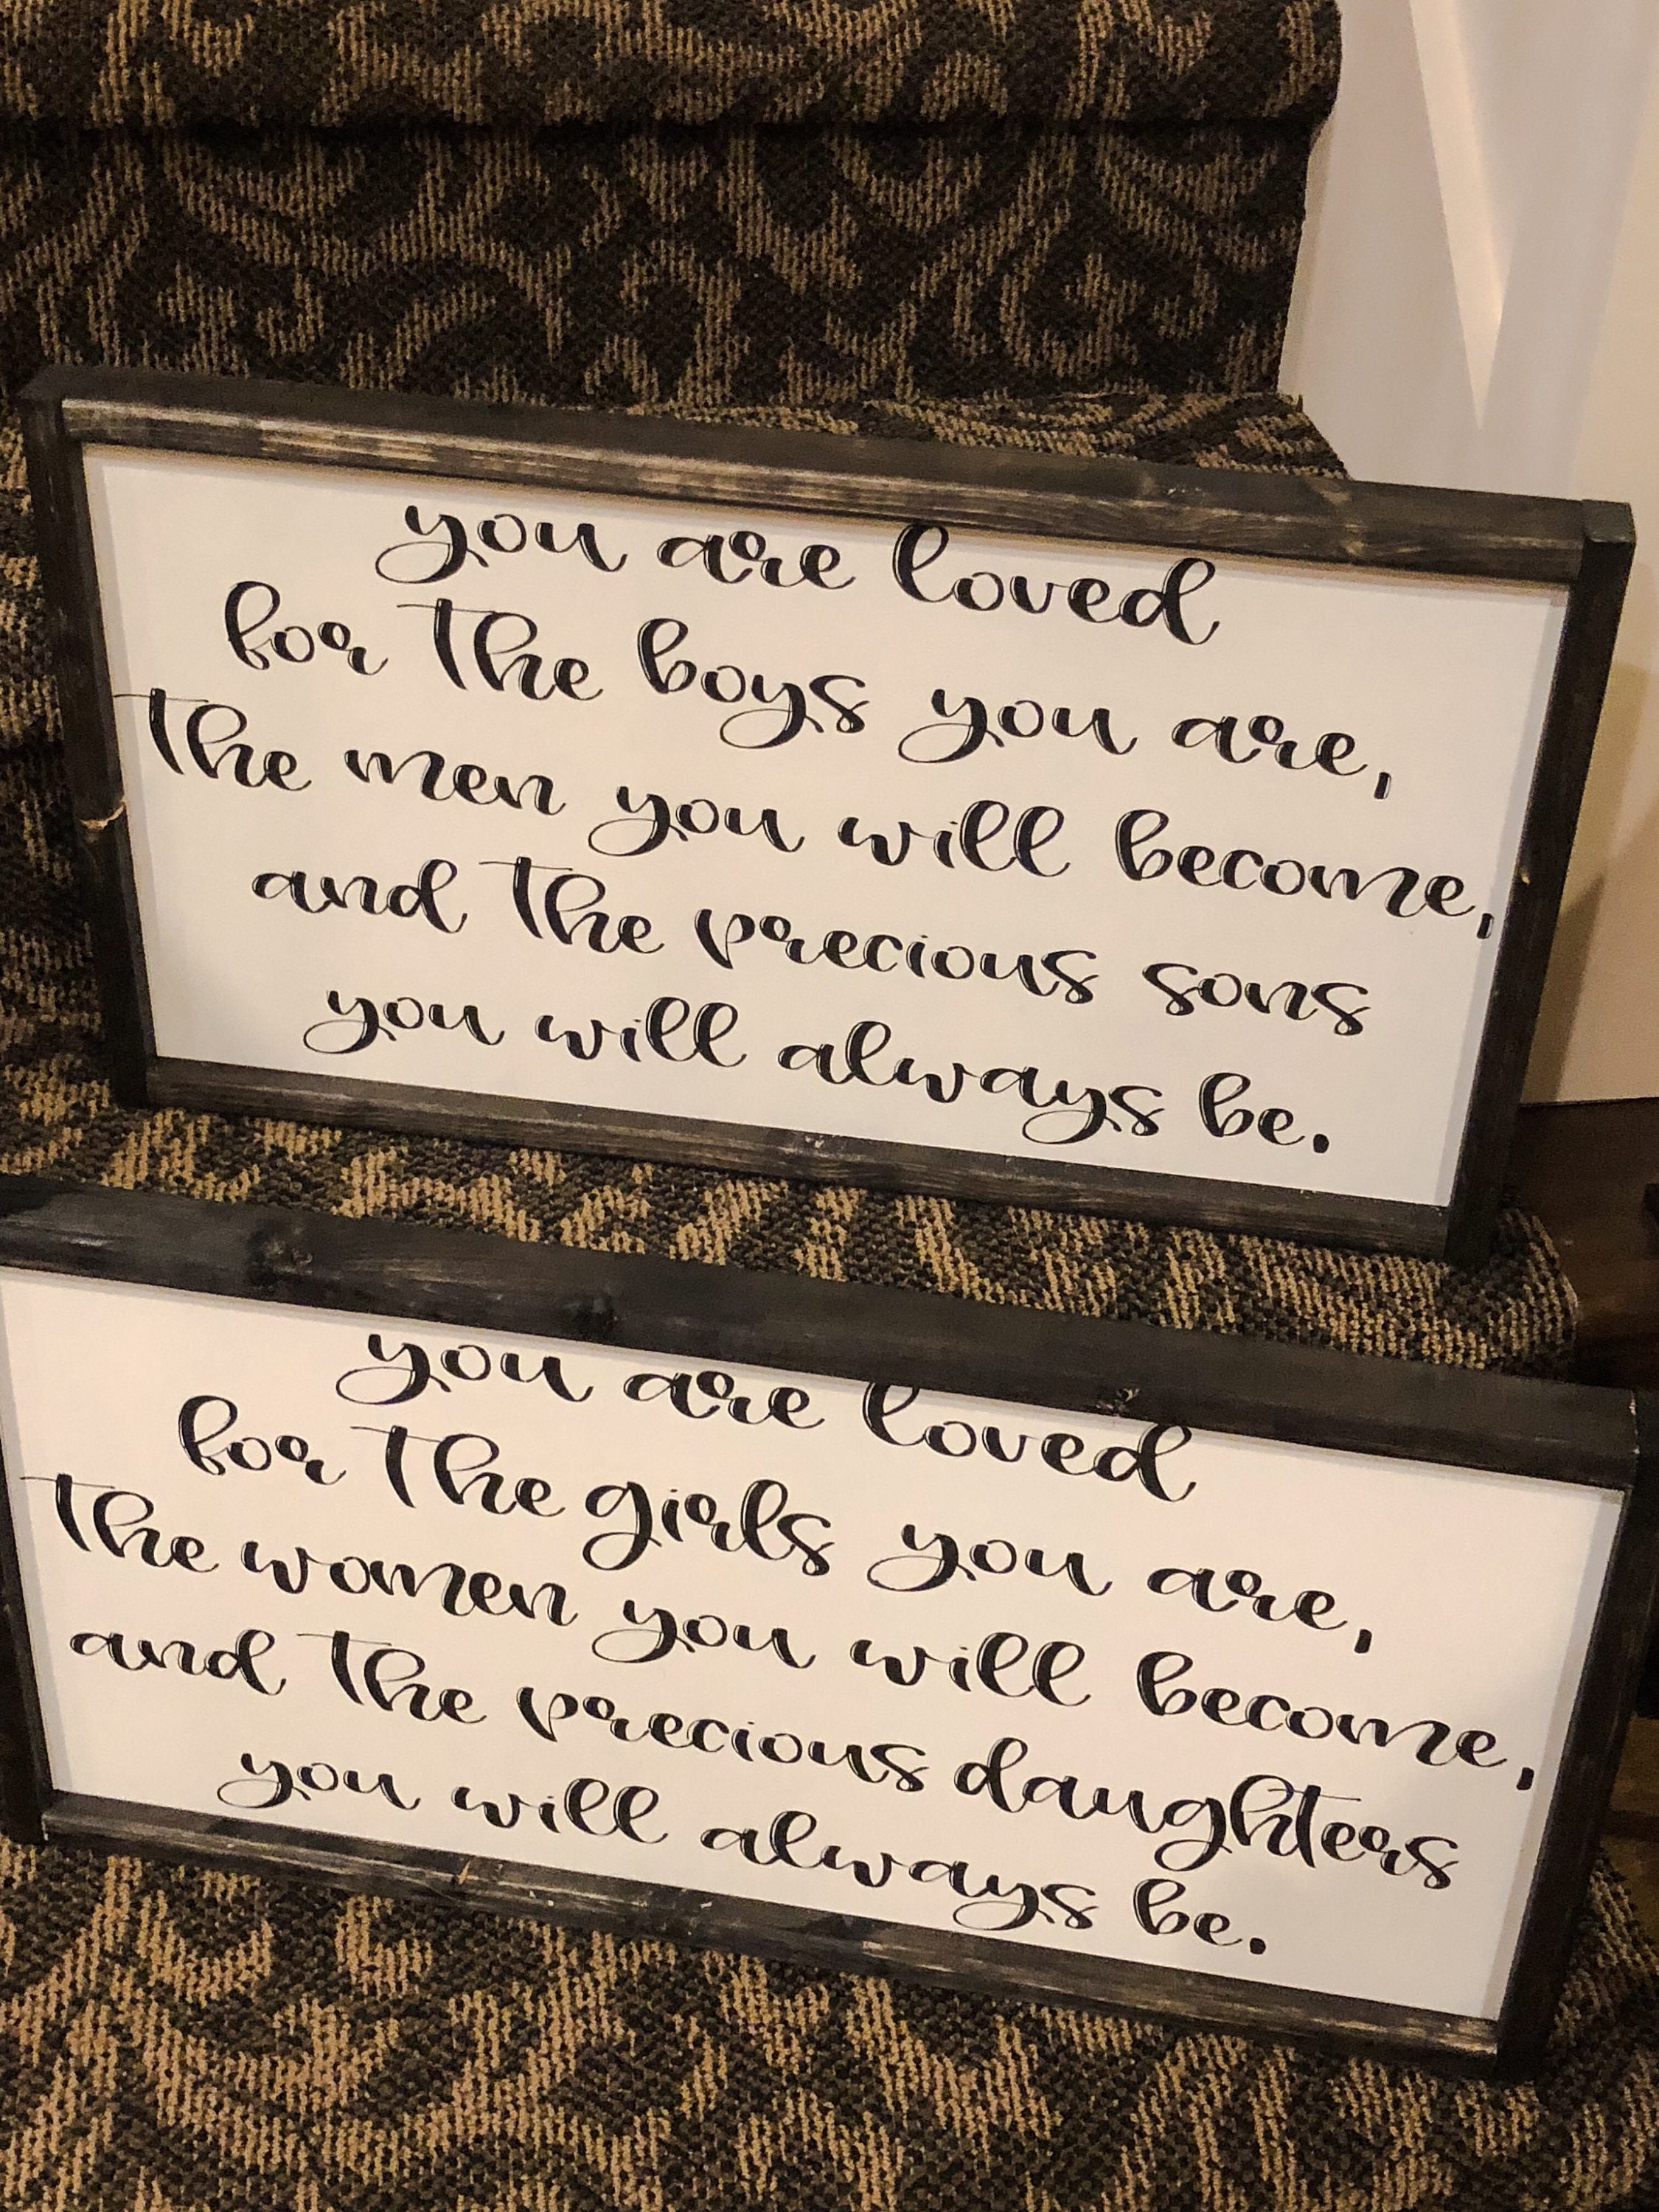 you are loved
for the boys you are,
the men you will become,
and the precious sons
you will always be.
you are loved
for the girls you are,
the women you will become,
and the precious daughters
you will always be.